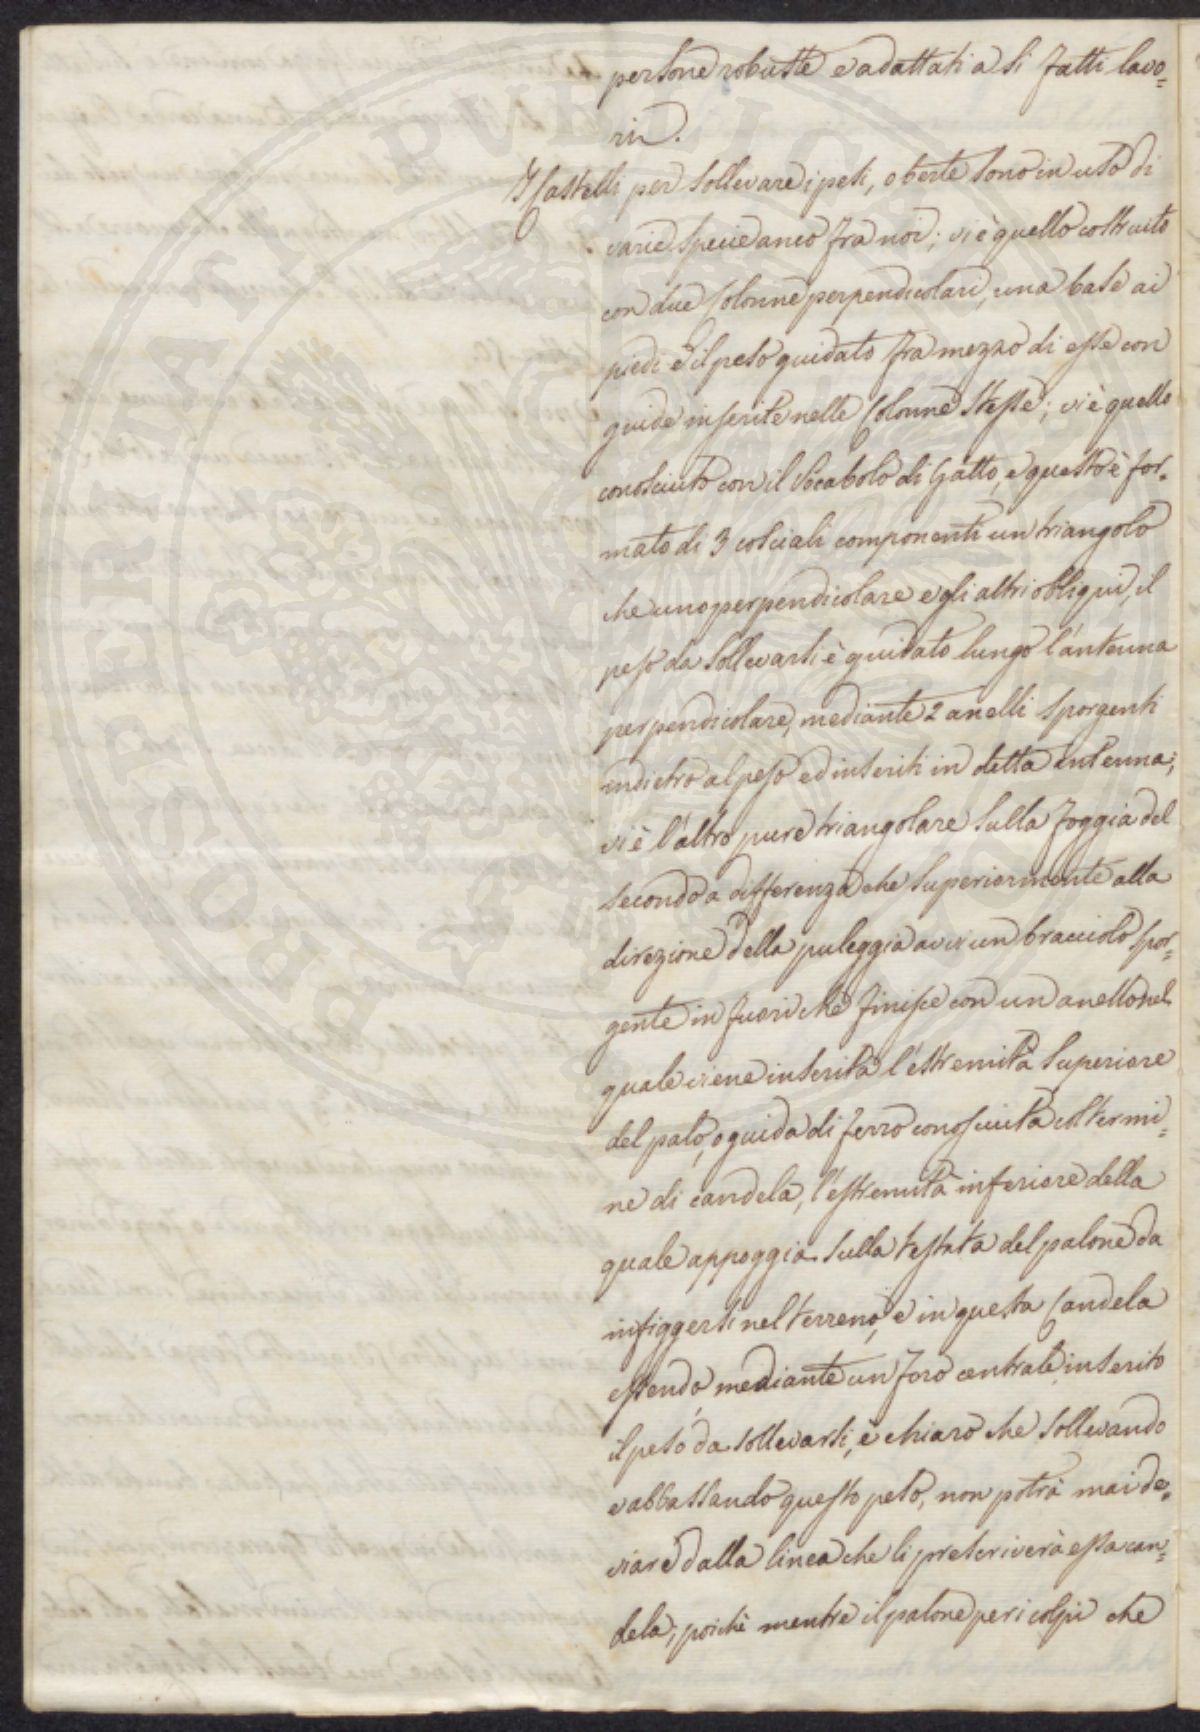 persone robuste e adattati a si fatti lavo=
rii.
I Castelli per sollevare i pesi, o berte sono in uso di
varie specie anco fra noi; vi è quello costruito
con due Colonne perpendicolari, una base ai
piedi e il peso guidato fra mezzo di esse con
guide inserite nelle Colonne stesse; vi è quello
conosciuto con il Vocabolo di Gatto, e questo è for=
mato di 3 cosciali componenti un triangolo
che uno perpendicolare e gli altri obliqui, il
peso da sollevarsi è guidato lungo l'antenna
perpendicolare, mediante 2 anelli sporgenti
indietro al peso ed inseriti in detta antenna;
vi è l'altro pure triangolare sulla foggia del
secondo a differenza che superiormente alla
direzione della puleggia avvi un bracciolo spor=
gente in fuori che finisce con un anello nel
quale viene inserita l'estremità superiore
del palo, o guida di ferro conosciuta col termi=
ne di candela, l'estremità inferiore della
quale appoggia sulla testata del palone da
infiggersi nel terreno, e in questa Candela
essendo, mediante un foro centrale, inserito
il peso da sollevarsi, è chiaro che sollevando
e abbassando questo peso, non potrà mai de=
viare dalla linea che li prescriverà essa can=
dela; poiché mentre il palone per i colpi che
PROSPERITATI PUBLICAE